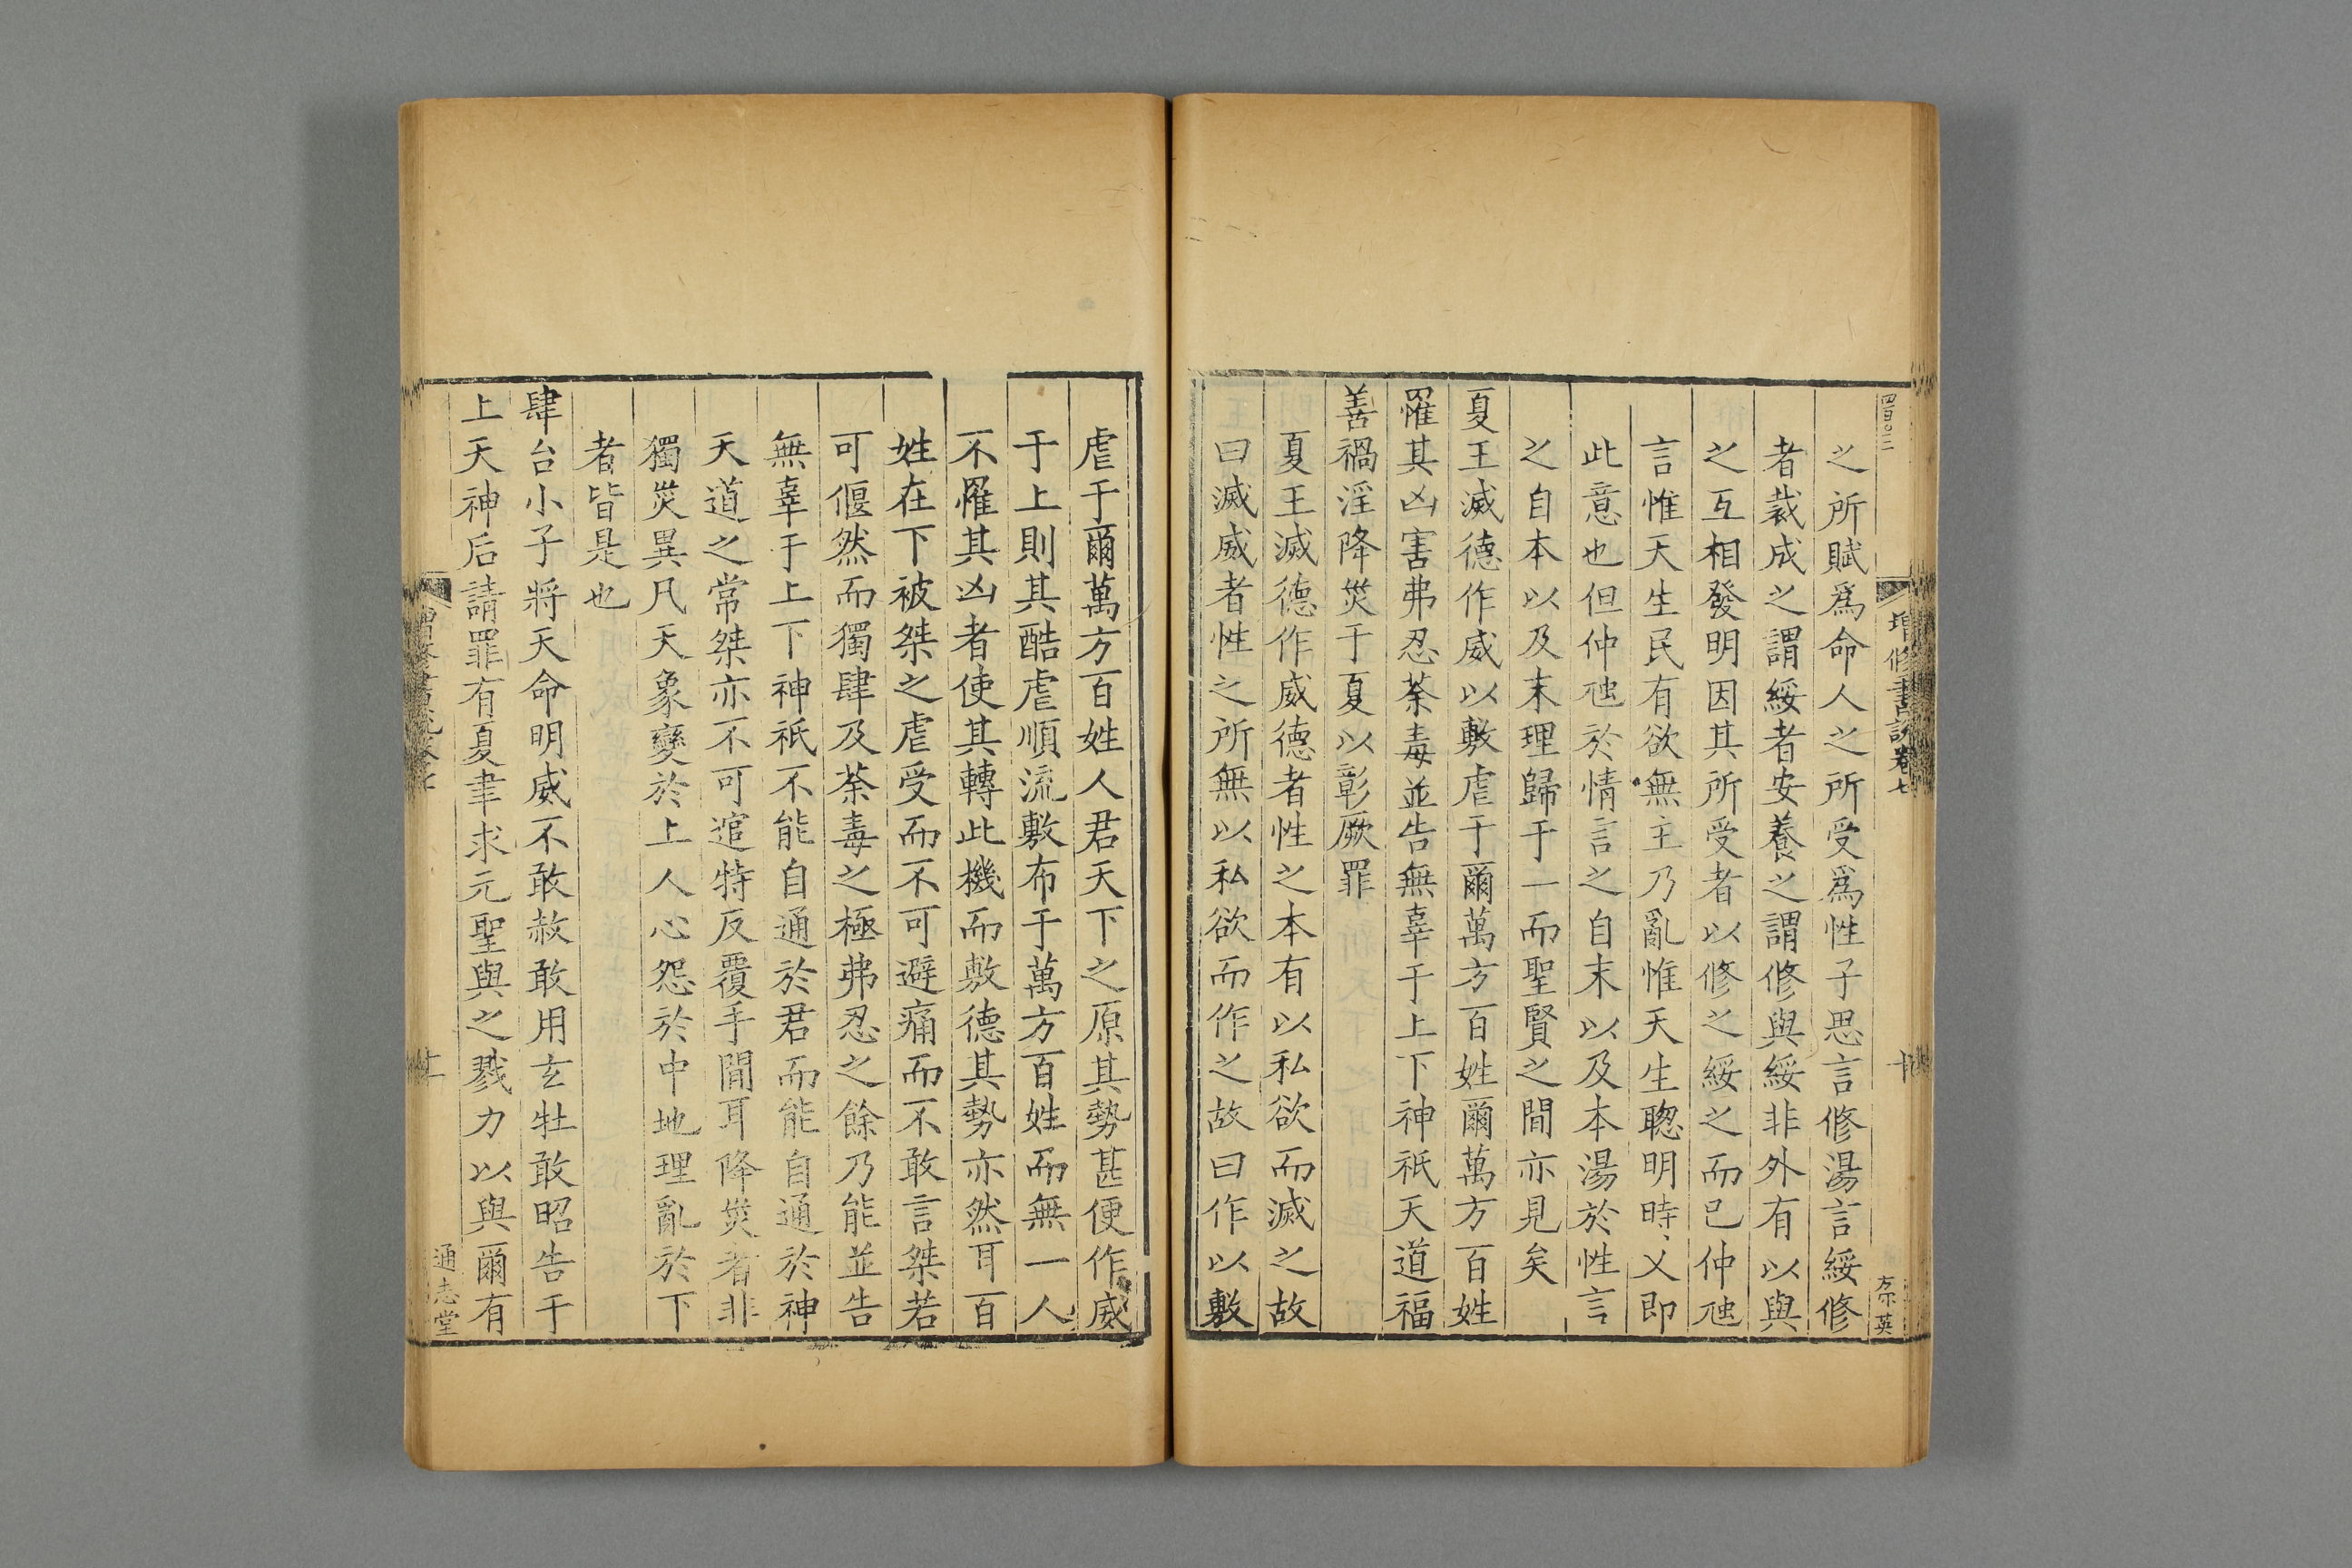 四百〇二
增修書說卷七
十
之所賦爲命人之所受爲性子思言修湯言綏修
者裁成之謂綏者安養之謂修與綏非外有以與
之互相發明因其所受者以修之綏之而已仲虺
言惟天生民有欲無主乃亂惟天生聦明時乂即
此意也但仲虺於情言之自末以及本湯於性言
之自本以及末理歸于一而聖賢之間亦見矣
夏王滅德作威以敷虐于爾萬方百姓爾萬方百姓
罹其凶害弗忍荼毒並告無辜于上下神祇天道福
善禍淫降災于夏以彰厥罪
夏王滅德作威德者性之本有以私欲而滅之故
曰滅威者性之所無以私欲而作之故曰作以敷
虐于爾萬方百姓人君天下之原其勢甚便作威
于上則其酷虐順流敷布于萬方百姓而無一人
不罹其凶者使其轉此機而敷德其勢亦然耳百
姓在下被桀之虐受而不可避痛而不敢言桀若
可偃然而獨肆及荼毒之極弗忍之餘乃能並告
無辜于上下神祇不能自通於君而能自通於神
天道之常桀亦不可逭特反覆手間耳降災者非
獨災異凡天象變於上人心怨於中地理亂於下
者皆是也
肆台小子將天命明威不敢赦敢用玄牡敢昭告于
上天神后請罪有夏聿求元聖與之戮力以與爾有
通志堂